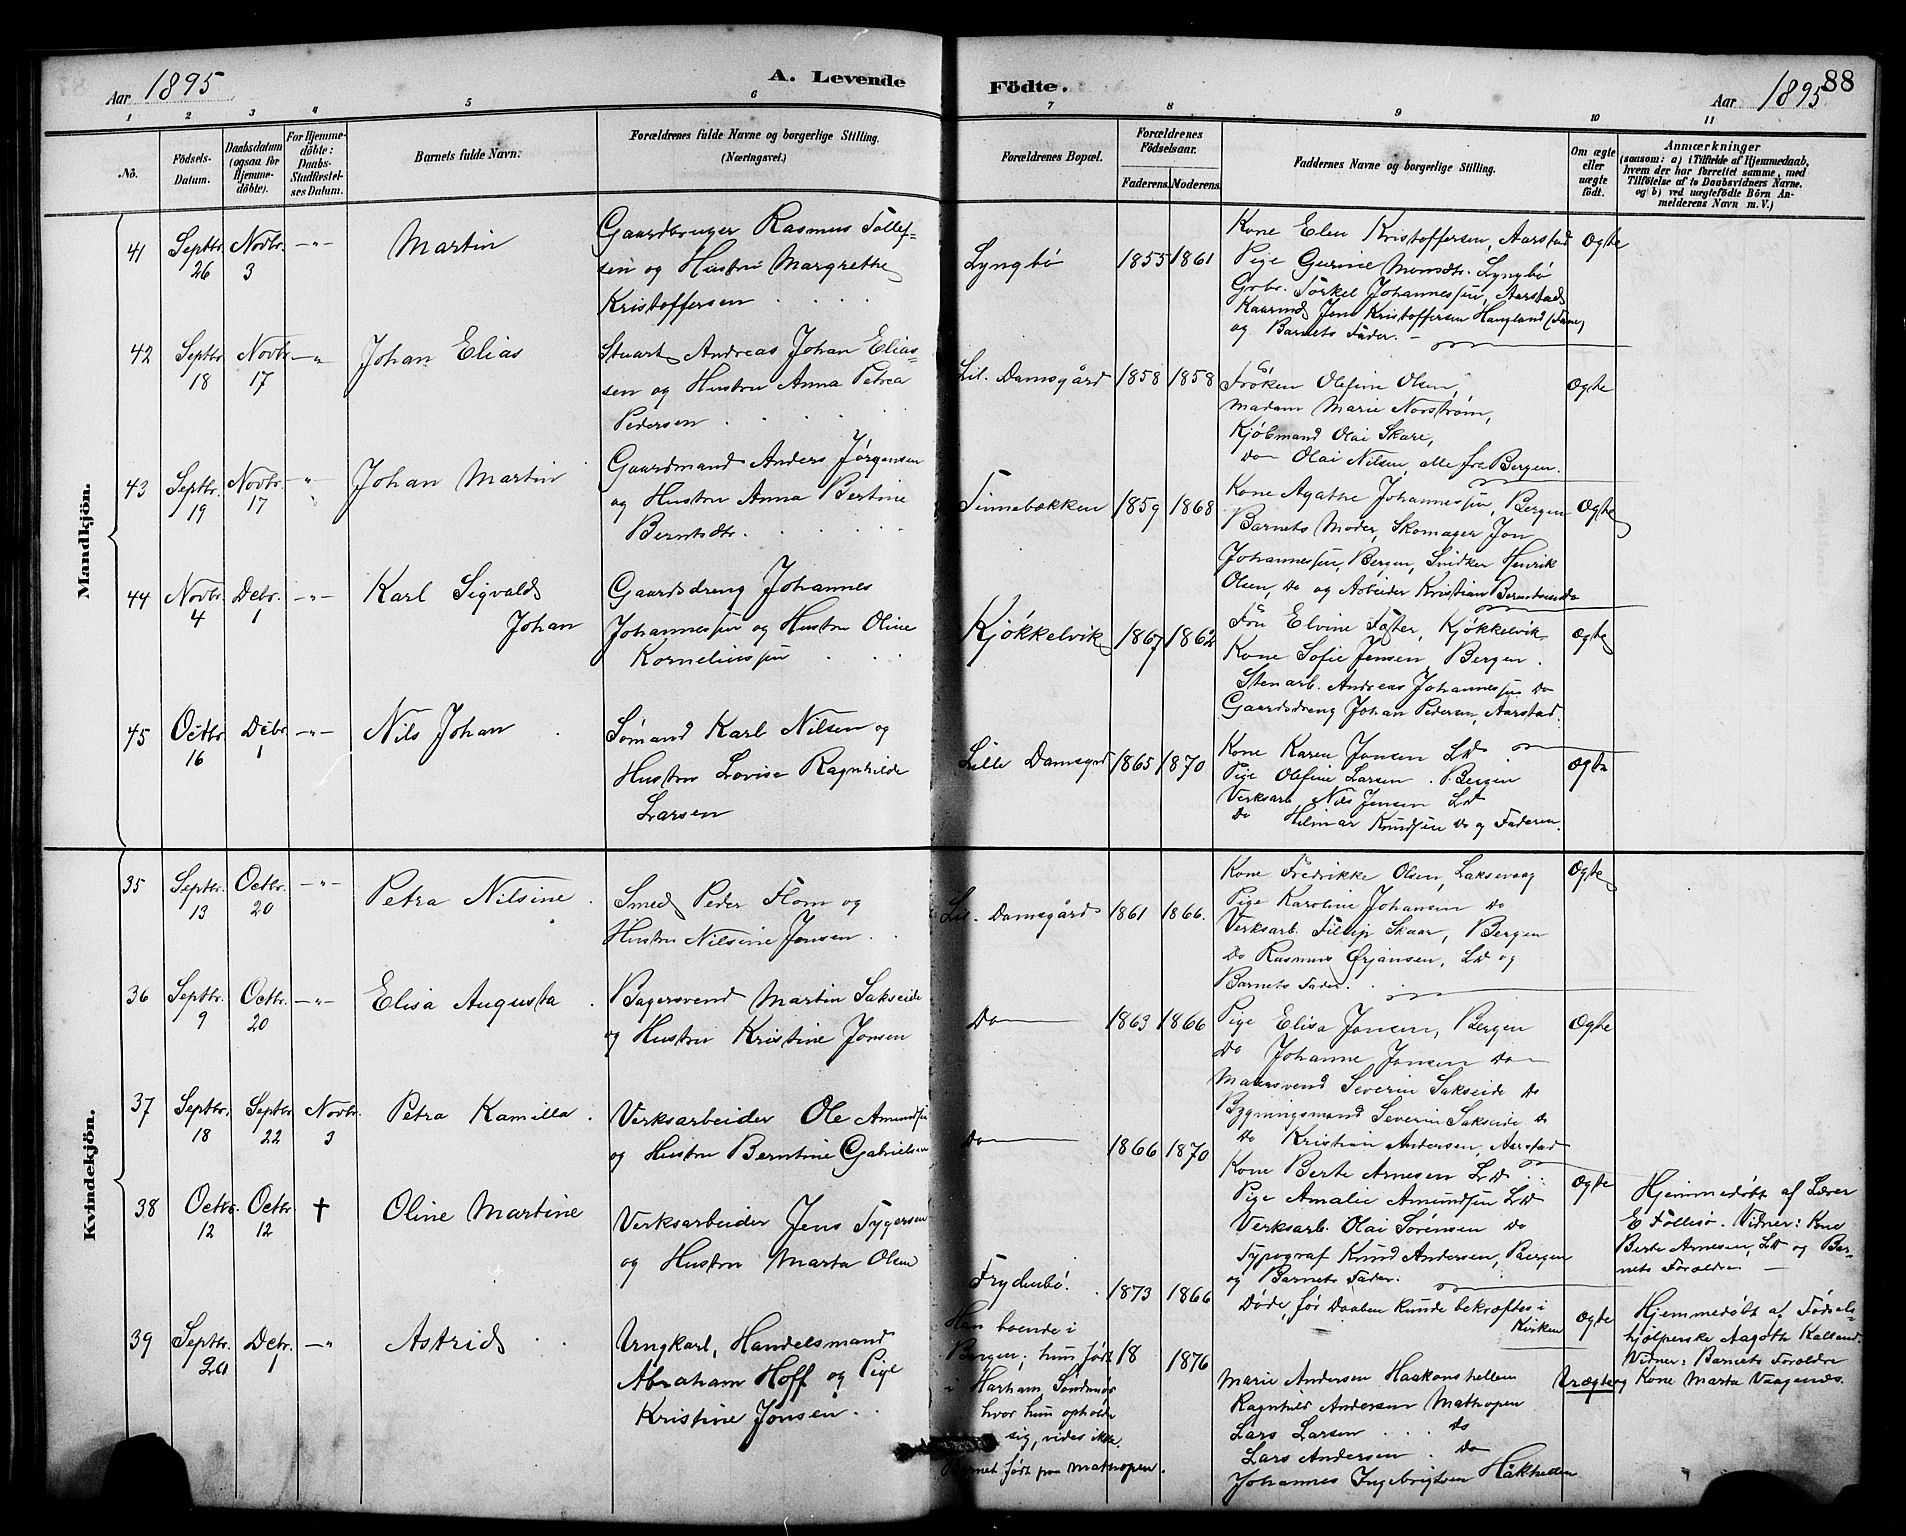 Aar 1895
A. Levende
Födte.
Aar 1895
88
1 2 3 4 5 6 7 8 9 10 11
No.
Födsels-
Datum.
Daabsdatum
(ogsaa for
Hjemme-
döbte).
For Hjemme-
döbte:
Daabs-
Stadfæstel-
ses Datum.
Barnets fulde Navn.
Forældrenes fulde Navne og borgerlige Stilling.
(Næringsvei.)
Forældrenes Bopæl.
Forældrenes
Födselsaar.
Faderens. Moderens.
Faddernes Navne og borgerlige Stilling.
Om ægte
eller
uægte
födt.
Anmærkninger
(saasom: a) i Tilfælde af Hjemmedaab,
hvem der har forrettet samme, med
Tilföielse af to Daabsvidners Navne.
og b) ved uægtefödte Börn An-
melderens Navn m. V.)
Mandkjön.
41 Septbr. 26 Novbr. 3 -"- Martin
Gaardbruger Rasmus Tollef-
sen og Hustru Margrethe
Kristoffersen
Lyngbö 1855 1861
Kone Elen Kristoffersen, Aarstad
Pige Gurine Monsdtr. Lyngbö
Grbr. Torkel Johannessen, Aarstad
Jens Kristoffersen Haugland (Fane)
og Barnets Fader. -
Ægte
42 Septbr 18 Novbr 17 -"- Johan Elias
Stuart Andreas Johan Elias-
sen og Hustru Anna Petrea
Pedersen
Lil. Damsgård 1858 1858
Frøken Olefine Olsen,
Madam Marie Norstrøm,
Kjöbmand Olai Skare,
Do Olai Nilsen, alle fra Bergen.
Ægte
43 Septbr. 19 Novbr. 17 -"- Johan Martin
Gaardmand Anders Jørgensen
og Hustru Anna Bertine
Berntsdtr.
Tinnebækken 1859 1868
Kone Agathe Johannessen, Bergen
Barnets Moder, Skomager Jon
Johannessen, Bergen, Snidker Henrik
Olsen, Do og Arbeider Kristian Berntsen Do
Ægte
44 Novbr. 4 Debr. 1 -"- Karl Sigvald
Johan
Gaardsdreng Johannes
Johannessen og Hustru Oline
Korneliussen
Kjøkkelvik 1867 1862
Fru Elvine Faster, Kjøkkelvik
Kone Sofie Jensen, Bergen.
Stenarb. Andreas Johannessen Do
Gaardsdreng Johan Pedersen, Aarstad.
Ægte
45 Octbr. 16 Debr. 1 -"- Nils Johan
Sømand Karl Nilsen og
Hustru Lovise Ragnhilde
Larsen
Lille Damsgrd 1865 1870
Kone Karen Jonsen Ld
Pige Olefine Larsen. Bergen
Verksarb. Nils Jensen Ld
Do Hilmar Knudsen Do og Faderen.
Ægte
Kvindekjön.
35 Septbr. 13 Octbr. 20 -"- Petra Nilsine.
Smed Peder Flom og
Hustru Nilsine Jonsen
Lil. Damsgård 1861 1866.
Kone Fredrikke Olsen, Laksevaag
Pige Karoline Johansen Do
Verksarb. Filip Skaar, Bergen
Do Rasmus Ørjansen, Ld og
Barnets Fader.
Ægte
36 Septbr. 9 Octbr. 20 -"- Elisa Augusta
Bagersvend Martin Sakseide
og Hustru Kristine Jonsen
Do 1863 1866
Pige Elisa Jonsen, Bergen
Do Johanne Jonsen Do
Malersvend Severin Sakseide Do
Bygningsmand Severin Sakseide Do
Do Kristian Andersen, Aarstad
Ægte
37 Septbr. 18 Septbr 22 Novbr. 3 Petra Kamilla.
Verksarbeider Ole Amundsen
og Hustru Berntine Gabrielsen
Do 1866 1870
Kone Berte Arnesen Ld
Pige Amalie Amundsen Ld
Verksarb. Olai Sörensen Do
Typograf Knud Andersen, Bergen
og Barnets Fader.
Ægte
Hjemmedöbt af Lærer
E Follesö. Vidner: Kone
Berte Arnesen, Ld og Bar-
nets Forældre
38 Octbr. 12 Octbr. 12 † Oline Martine
Verksarbeider Jens Tygersen
og Hustru Marta Olsen
Frydenbö. 1873 1866
Døde, før Daaben kunde bekræftes i
Kirken
Ægte
Hjemmedøbt af Födsels-
hjælperske Aagothe Kalland.
Vidner: Barnets Forældre
og Kone Marta Vaagenes.
39 Septbr. Debr. 1 -"- Astrid
Ungkarl, Handelsmand
Abraham Hoff og Pige
Kristine Jonsen.
Han boende i
Bergen; hun født
i Harham, Søndmør
hvor hun opholder
sig, vides ikke.
Barnet født paa Mathopen.
18 1876
Marie Andersen Haakonshellen
Ragnhild Andersen Mathopen
Lars Larsen Do
Lars Andersen Do
Johannes Ingebrigtsen Håkhellen
Uægte